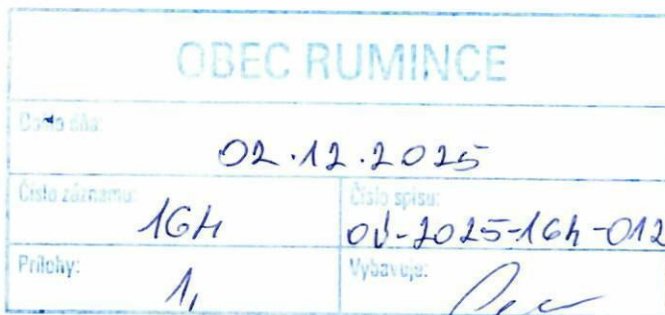 OBEC RUMINCE
Došlo dňa:
02.12.2025
Číslo záznamu: Číslo spisu:
164 OÚ-2025-164-012
Prílohy: Vybavuje:
1,